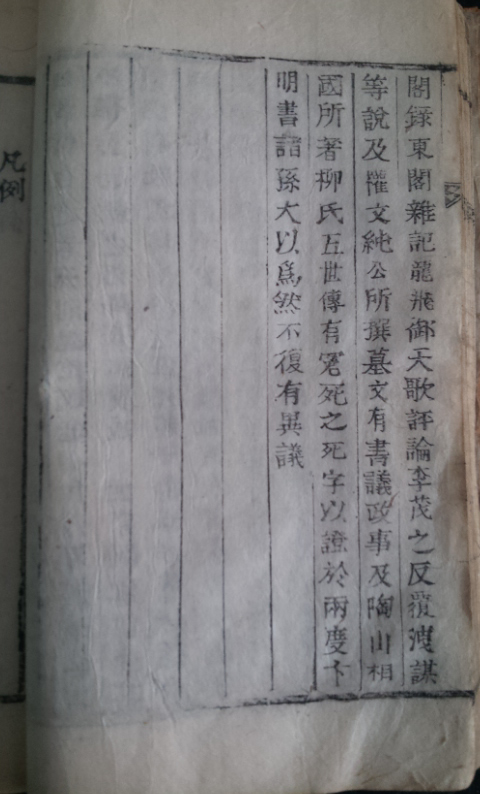 閣錄東閣雜記龍飛御天歌評論李茂之反覆洩謀
等說及權文純公所撰墓文有書議政事及陶山相
國所著柳氏五世傳有寃死之死字以證於兩度卞
明書諸孫大以爲然不復有異議
凡例